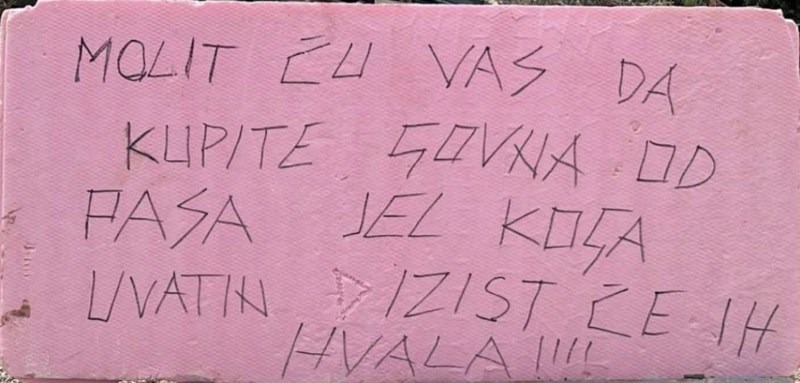 MOLIT ĆU VAS DA
KUPITE GOVNA OD
PASA JEL KOGA
UVATIN IZIST ĆE IH
HVALA !!!!